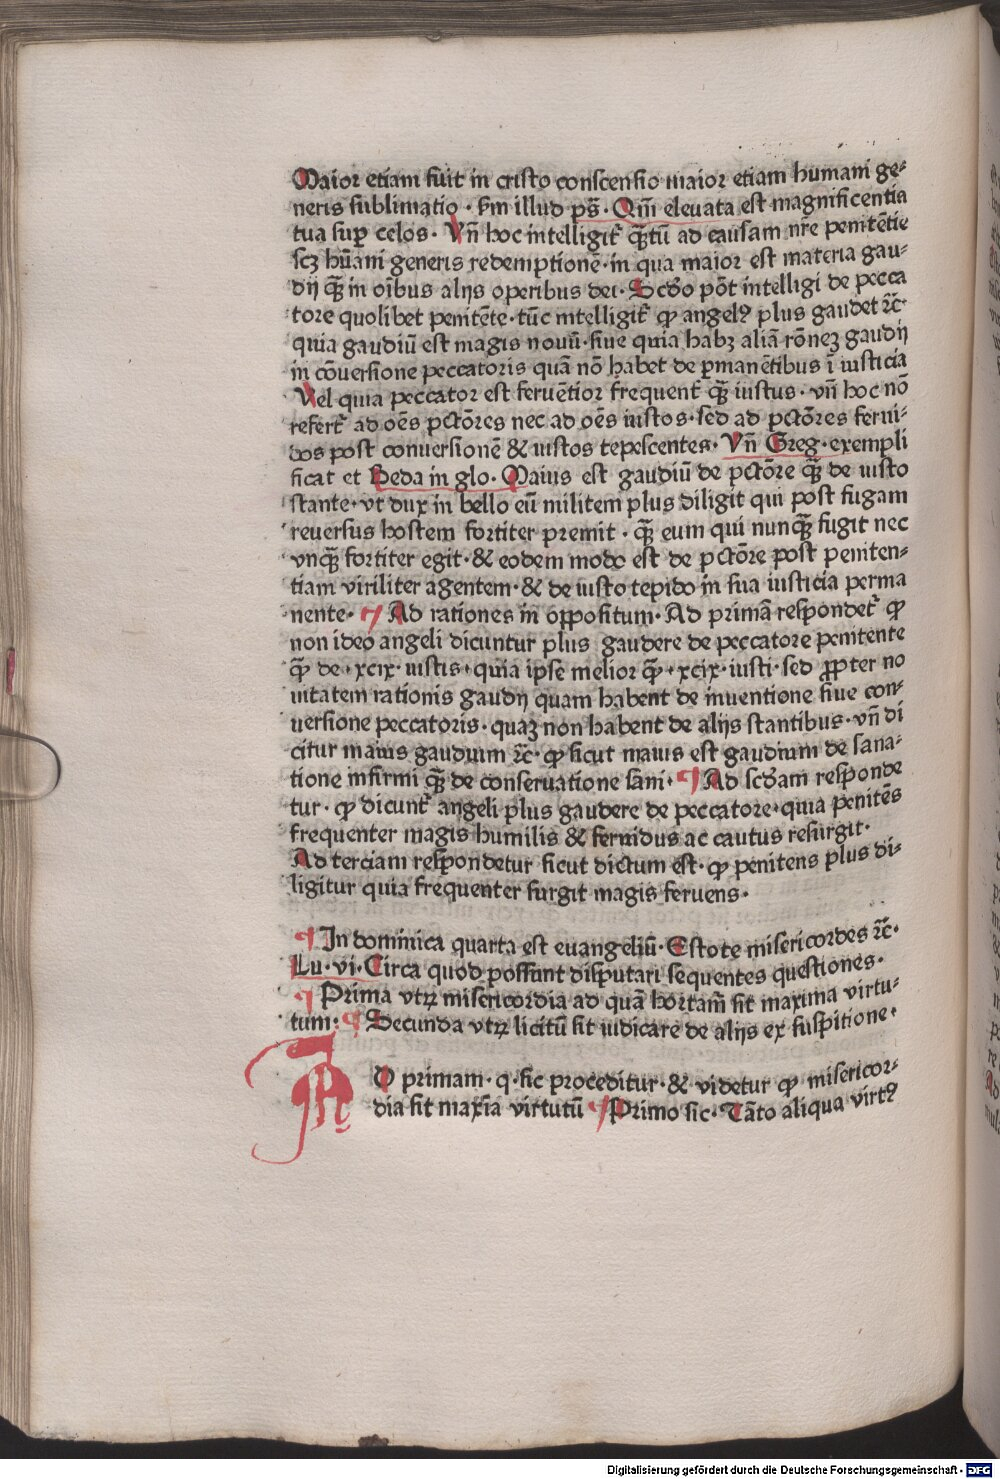 Maior etiam fuit in cristo conscensio maior etiam humani ge⸗
neris sublimatio · ẜm illud ps̄ · Qm̄ eleuata est magnificentia
tua suꝑ celos · Vn̄ hoc intelligit᷑ qꝫ̄tū ad causam nr̄e penitētie
scꝫ hūani generis redemptionē · in qua maior est materia gau⸗
dij qꝫ̄ in oībus alijs operibus dei · Scd̄o pōt intelligi de pecca
tore quolibet penitēte · tūc intelligit᷑ ꝙ angelꝰ plus gaudet ⁊c̄
quia gaudiū est magis nouū · siue quia habꝫ aliā rōneꝫ gaudij
in cōuersione peccatoris quā nō habet de ꝑmanētibus ī iusticia
Vel quia peccator est feruētior frequent᷑ qꝫ̄ iustus · vn̄ hoc nō
refert᷑ ad oēs pctōres nec ad oēs iustos · sed ad pctōres ferui⸗
dos post conuersionē & iustos tepescentes · Vn̄ Greg · exempli
ficat et Beda in glo · Maius est gaudiū de pctōre qꝫ̄ de iusto
stante · vt dux in bello eū militem plus diligit qui post fugam
reuersus hostem fortiter premit · qꝫ̄ eum qui nunqꝫ̄ fugit nec
vnqꝫ̄ fortiter egit · & eodem modo est de pctōre post peniten⸗
tiam viriliter agentem · & de iusto tepido in sua iusticia perma
nente · ⁊ Ad rationes in oppositum · Ad primā respondet᷑ ꝙ
non ideo angeli dicuntur plus gaudere de peccatore penitente
qꝫ̄ de · xcix · iustis · quia ipse melior qꝫ̄ · xcix · iusti · sed ꝓpter no
uitatem rationis gaudij quam habent de inuentione siue con⸗
uersione peccatoris · quaꝫ non habent de alijs stantibus · vn̄ di
citur maius gaudium ⁊c̄ · ꝙ sicut maius est gaudium de sana⸗
tione infirmi qꝫ̄ de conseruatione sani · ¶ Ad scd̄am responde
tur · ꝙ dicunt᷑ angeli plus gaudere de peccatore · quia penitēs
frequenter magis humilis & feruidus ac cautus resurgit ·
Ad terciam respondetur sicut dictum est · ꝙ penitens plus di⸗
ligitur quia frequenter surgit magis feruens ·
¶ In dominica quarta est euangeliū · Estote misericordes ⁊c̄ ·
Lu · vi · Circa quod possunt disputari sequentes questiones ·
¶ Prima vtꝝ misericordia ad quā hortam̄ sit maxima virtu⸗
tum : ¶ Secunda vtꝝ licitū sit iudicare de alijs ex suspitione ·
AD primam · q · sic proceditur · & videtur ꝙ misericor⸗
dia sit maxīa virtutū ¶ Primo sic · Tāto aliqua virtꝰ
Digitalisierung gefördert durch die Deutsche Forschungsgemeinschaft - DFG